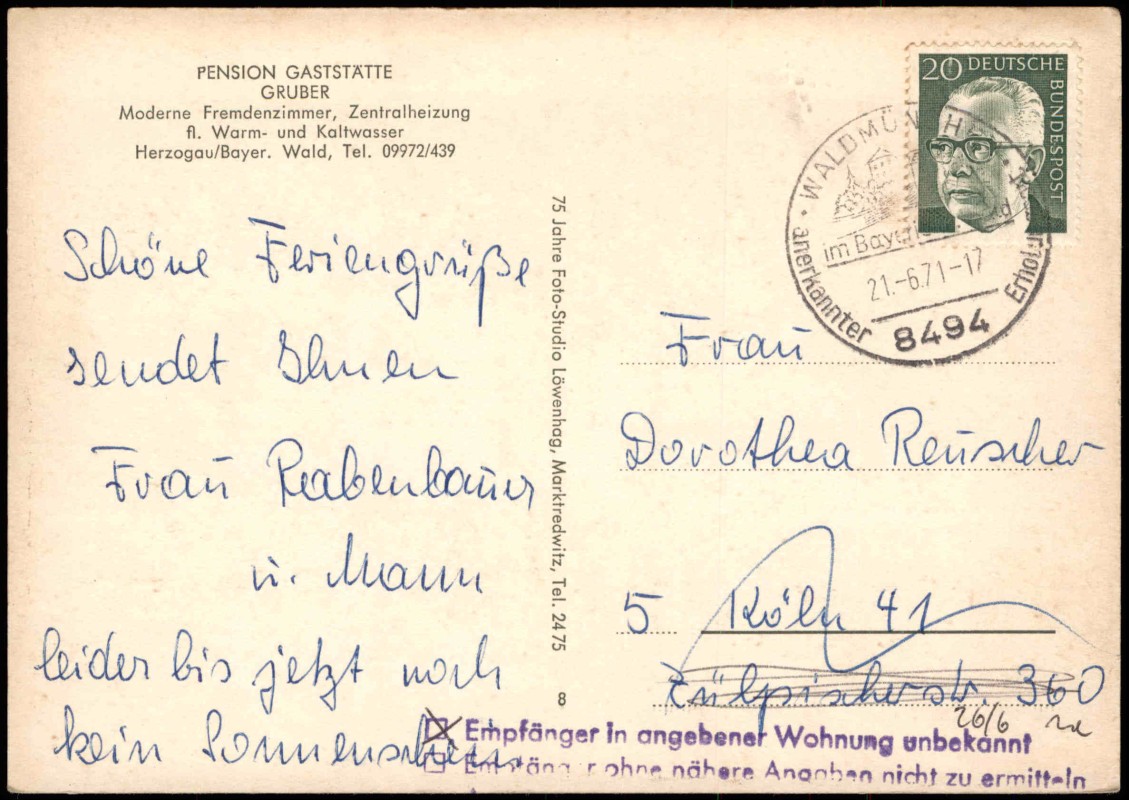 PENSION GASTSTÄTTE
GRUBER
Moderne Fremdenzimmer, Zentralheizung
fl. Warm- und Kaltwasser
Herzogau/Bayer. Wald, Tel. 09972/439
Schöne Feriengrüße
sendet Ihnen
Frau Rabenbauer
u. Mann
leider bis jetzt noch
kein Sonnenschein
75 Jahre Foto-Studio Löwenhag, Marktredwitz, Tel. 2475
8
20 DEUTSCHE
BUNDESPOST
WALDMÜNCH
im Bayeri
21.-6.71-17
anerkannter Erholun
8494
Frau
Dorothea Reuscher
5 Köln 41
Zülpischerstr. 360
26/6
Empfänger in angebener Wohnung unbekannt
Empfänger ohne nähere Angaben nicht zu ermitteln